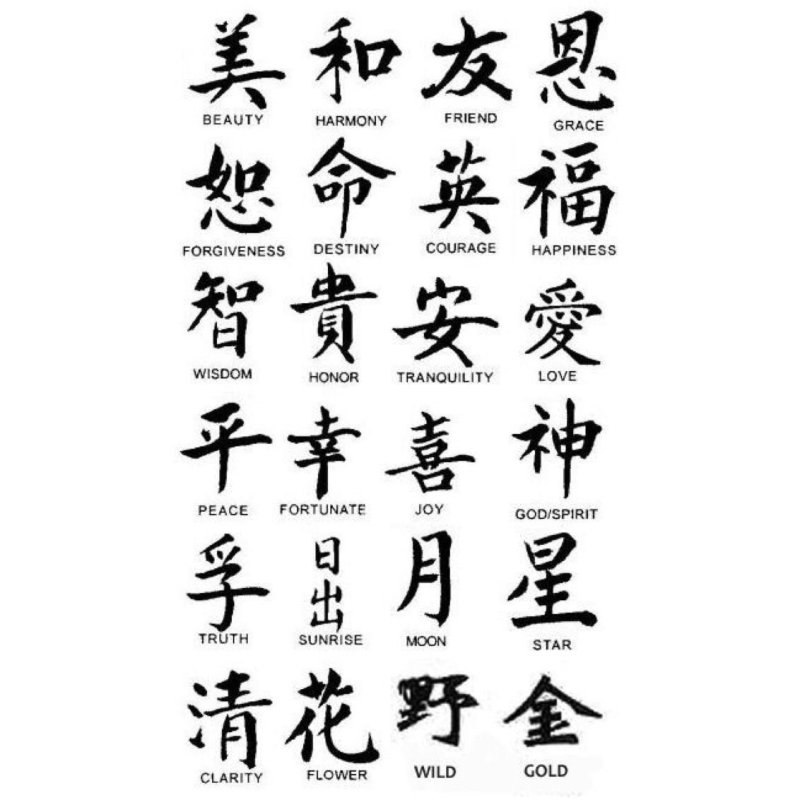 美 和 友 恩
BEAUTY HARMONY FRIEND GRACE
恕 命 英 福
FORGIVENESS DESTINY COURAGE HAPPINESS
智 貴 安 愛
WISDOM HONOR TRANQUILITY LOVE
平 幸 喜 神
PEACE FORTUNATE JOY GOD/SPIRIT
孚 日出 月 星
TRUTH SUNRISE MOON STAR
清 花 野 金
CLARITY FLOWER WILD GOLD